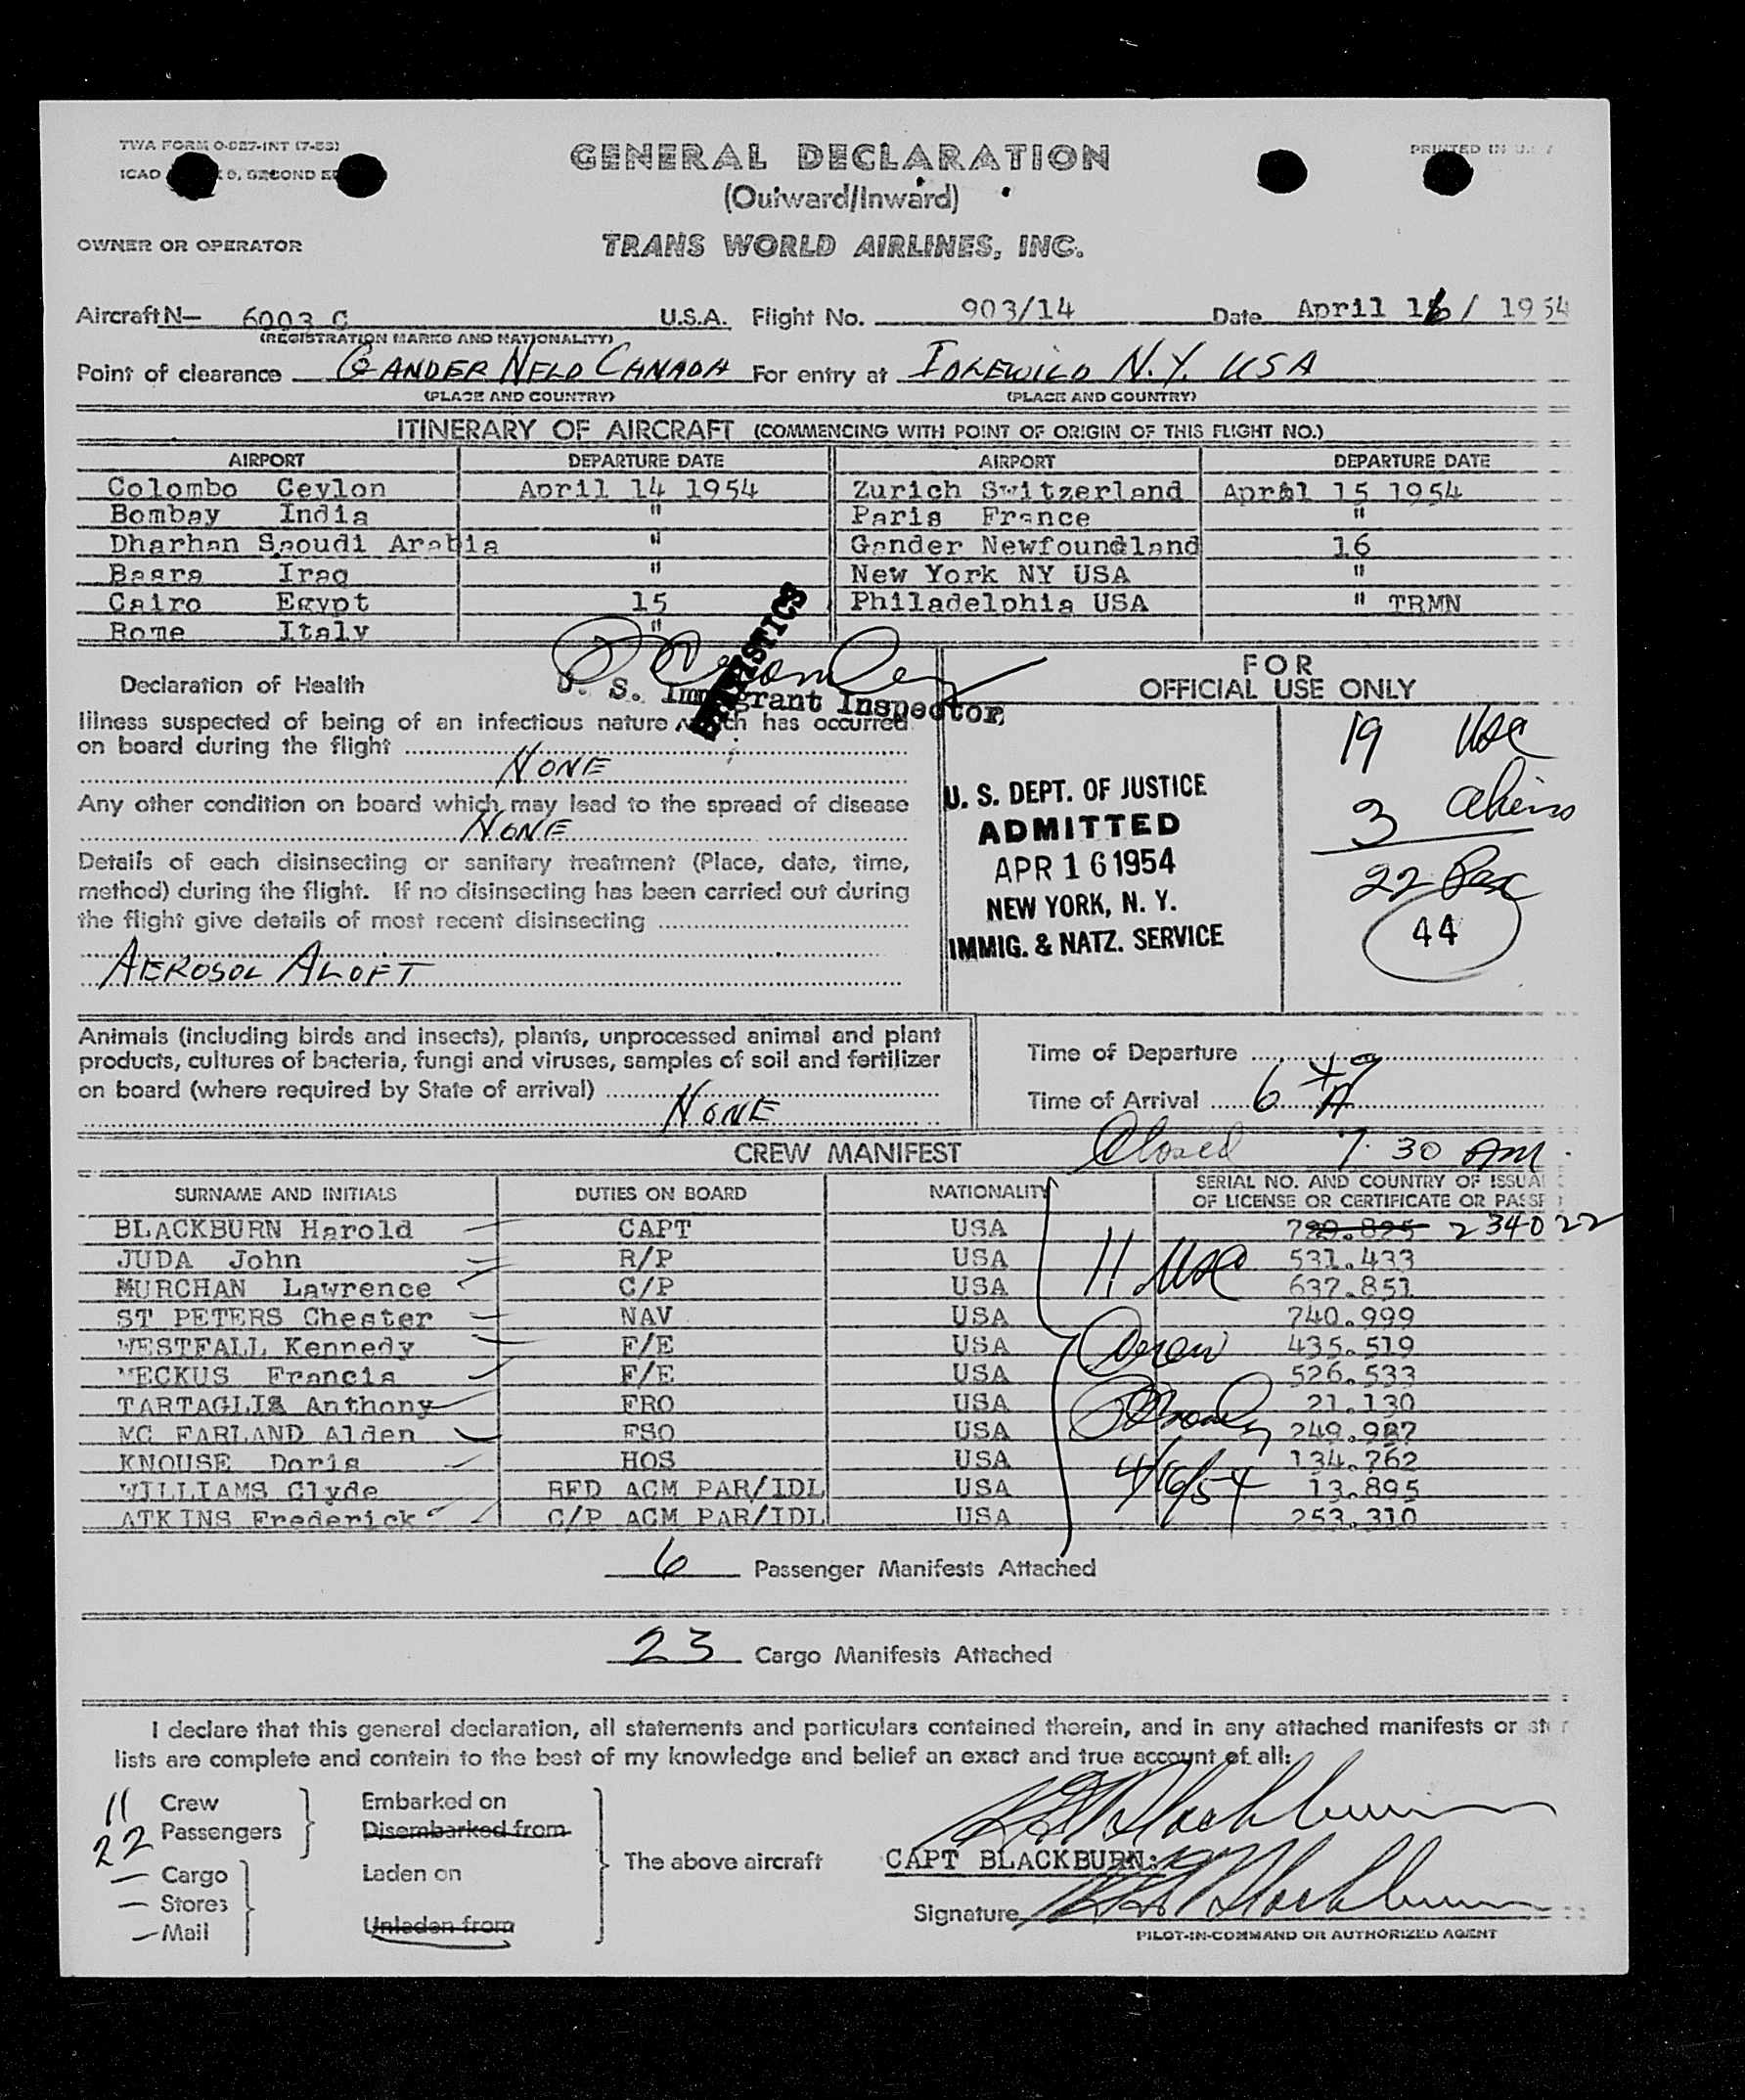 TWA FORM O-027-INT (7-53)
ICAO 9, SECOND
GENERAL DECLARATION
PRINTED IN U.
(Outward/Inward)
OWNER OR OPERATOR
TRANS WORLD AIRLINES, INC.
Aircraft N— 6003 C U.S.A. Flight No. 903/14 Date April 16 / 1954
(REGISTRATION MARKS AND NATIONALITY)
Point of clearance GANDER NFLD CANADA For entry at IDLEWILD N.Y. USA
(PLACE AND COUNTRY) (PLACE AND COUNTRY)
ITINERARY OF AIRCRAFT (COMMENCING WITH POINT OF ORIGIN OF THIS FLIGHT NO.)
AIRPORT DEPARTURE DATE AIRPORT DEPARTURE DATE
Colombo Ceylon April 14 1954 Zurich Switzerland April 15 1954
Bombay India " Paris France "
Dharhan Saoudi Arabia " Gander Newfoundland 16
Basra Iraq " New York NY USA "
Cairo Egypt 15 Philadelphia USA " TRMN
Rome Italy "
STATISTICS
U. S. Immigrant Inspector
Declaration of Health
Illness suspected of being of an infectious nature which has occurred
on board during the flight
NONE
Any other condition on board which may lead to the spread of disease
NONE
Details of each disinsecting or sanitary treatment (Place, date, time,
method) during the flight. If no disinsecting has been carried out during
the flight give details of most recent disinsecting
AEROSOL ALOFT
FOR
OFFICIAL USE ONLY
U. S. DEPT. OF JUSTICE
ADMITTED
APR 16 1954
NEW YORK, N. Y.
IMMIG. & NATZ. SERVICE
19 USC
3 Aliens
22 Pax
44
Animals (including birds and insects), plants, unprocessed animal and plant
products, cultures of bacteria, fungi and viruses, samples of soil and fertilizer
on board (where required by State of arrival)
NONE
Time of Departure
Time of Arrival 6 49 A
Closed 7:30 AM
CREW MANIFEST
SURNAME AND INITIALS DUTIES ON BOARD NATIONALITY SERIAL NO. AND COUNTRY OF ISSUA
OF LICENSE OR CERTIFICATE OR PASSP
BLACKBURN Harold CAPT USA 799.895 234022
JUDA John R/P USA 531.433
MURCHAN Lawrence C/P USA 637.851
ST PETERS Chester NAV USA 740.999
WESTFALL Kennedy F/E USA 435.519
MECKUS Francis F/E USA 526.533
TARTAGLIA Anthony FRO USA 21.130
MC FARLAND Alden FSO USA 249.987
KNOUSE Doris HOS USA 134.762
WILLIAMS Clyde RFD ACM PAR/IDL USA 13.895
ATKINS Frederick C/P ACM PAR/IDL USA 253.310
11 USC
Crew
4/16/54
6 Passenger Manifests Attached
23 Cargo Manifests Attached
I declare that this general declaration, all statements and particulars contained therein, and in any attached manifests or
lists are complete and contain to the best of my knowledge and belief an exact and true account of all:
11 Crew
22 Passengers
— Cargo
— Stores
— Mail
Embarked on
Disembarked from
Laden on
Unladen from
The above aircraft
H F Blackburn
CAPT BLACKBURN:
Signature H F Blackburn
PILOT-IN-COMMAND OR AUTHORIZED AGENT